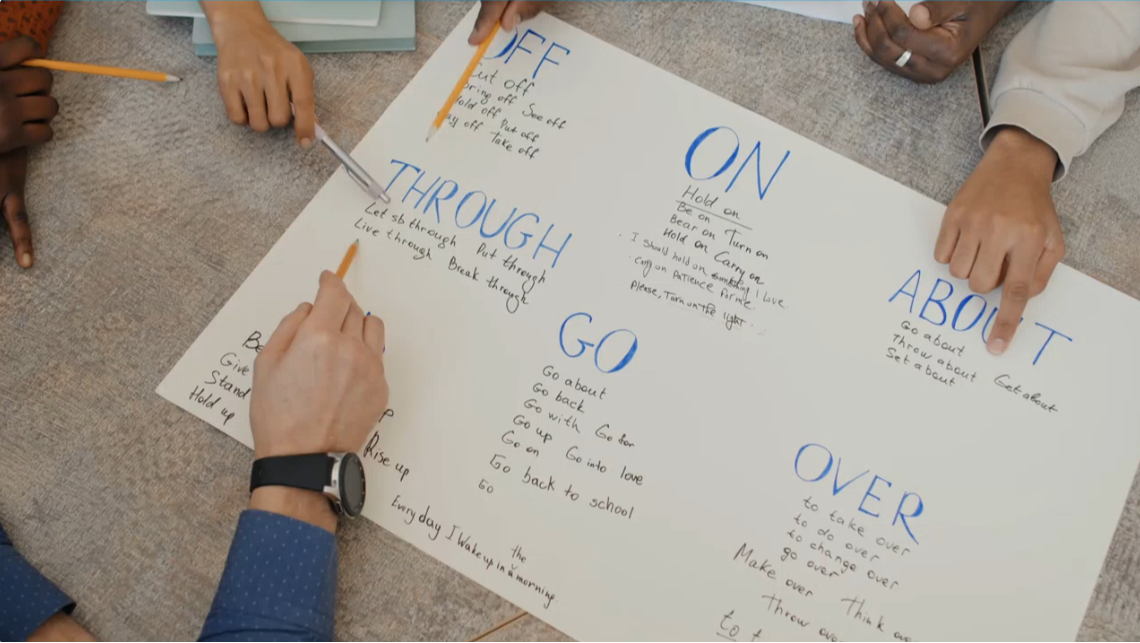 OFF
Cut off
bring off See off
hold off Put off
off Take off
THROUGH
Let sb through Put through
Live through Break through
ON
Hold on
Be on
Bear on Turn on
Hold on Carry on
I should hold on something I love
on patience for me.
Please, Turn on the light...
ABOUT
Go about
Throw about Get about
Set about
Be
Give
Stand
Hold up
Rise up
Every day I wake up in a the morning
GO
Go about
Go back
Go with Go for
Go up Go into love
Go on
Go back to school
Go
OVER
to take over
to do over
to change over
go over
Make over Think
Throw
to